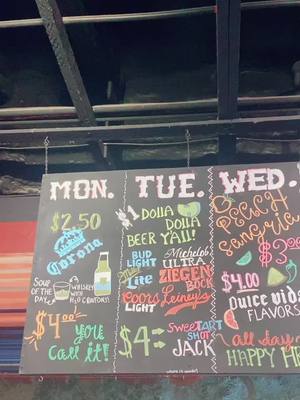 MON.
$2.50
Corona
SOUP
OF THE
DAY
WHISKEY
WITH
$4.00
YOU
CALL it!
TUE.
$1 DOLLA
DOLLA
BEER Y'ALL!
BUD
LIGHT
Miller
Lite
Coors
LIGHT
Michelob
ULTRA
ZIEGEN
BOCK
Leiney's
$4
SWEETART
SHOT
JACK
WED.
PEACH
Sangria
$3
$4.00
DULCE VIDA
FLAVORS
all day
HAPPY H